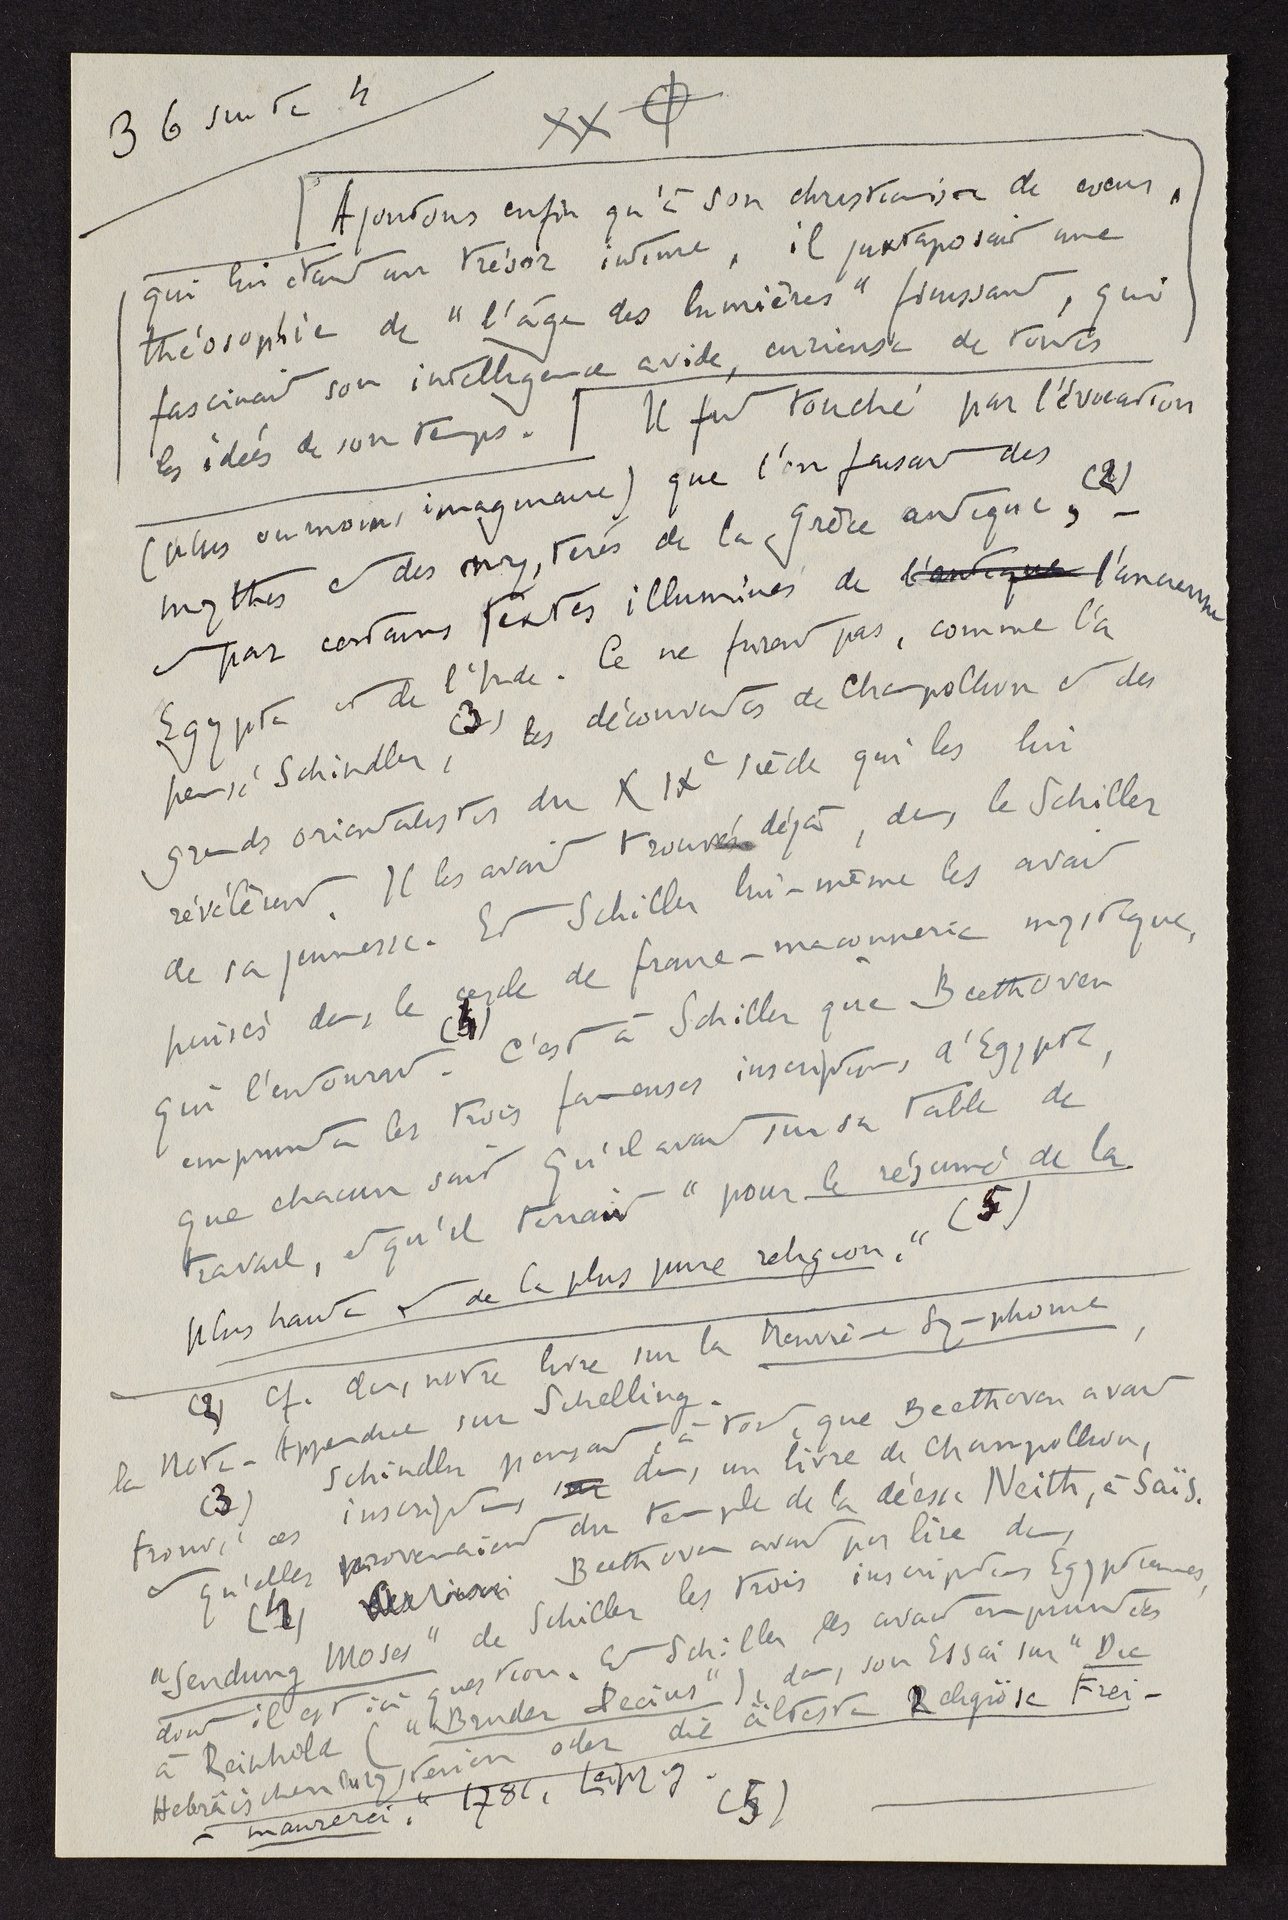 36 suite 4
XX
Ajoutons enfin qu'à son christianisme de coeur,
qui lui était un trésor intime, il juxtaposait une
théosophie de "l'âge des lumières" finissant, qui
fascinait son intelligence avide, curieuse de toutes
les idées de son temps. Il fut touché par l'évocation
(plus ou moins imaginaire) que l'on faisait des
mythes et des mystères de la Grèce antique, (2) –
et par certains textes illuminés de l'antique l'ancienne
Egypte et de l'Inde. Ce ne furent pas, comme l'a
pensé Schindler, (3) les découvertes de Champollion et des
grands orientalistes du XIXe siècle qui les lui
révélèrent. Il les avait trouvés déjà, dans le Schiller
de sa jeunesse. Et Schiller lui-même les avait
puisés dans le cercle de franc-maçonnerie mystique,
qui l'entourait. (4) C'est à Schiller que Beethoven
emprunta les trois fameuses inscriptions d'Egypte,
que chacun sait qu'il avait sur sa table de
travail, et qu'il tenait "pour le résumé de la
plus haute et de la plus pure religion." (5)
(2) Cf. dans notre livre sur la Neuvième Symphonie,
la Note-Appendice sur Schelling.
(3) Schindler pensait, à tort, que Beethoven avait
trouvé ces inscriptions dans un livre de Champollion,
et qu'elles provenaient du temple de la déesse Neith, à Saïs.
(4) Beethoven avait pu lire dans
"Sendung Moses" de Schiller les trois inscriptions Egyptiennes,
dont il est ici question. Et Schiller les avait empruntées
à Reinhold ("Bruder Decius"), dans son Essai sur "Die
Hebräischen Mysterien oder die älteste Religiöse Frei-
- maurerei." 178 , Leipzig.
(5)